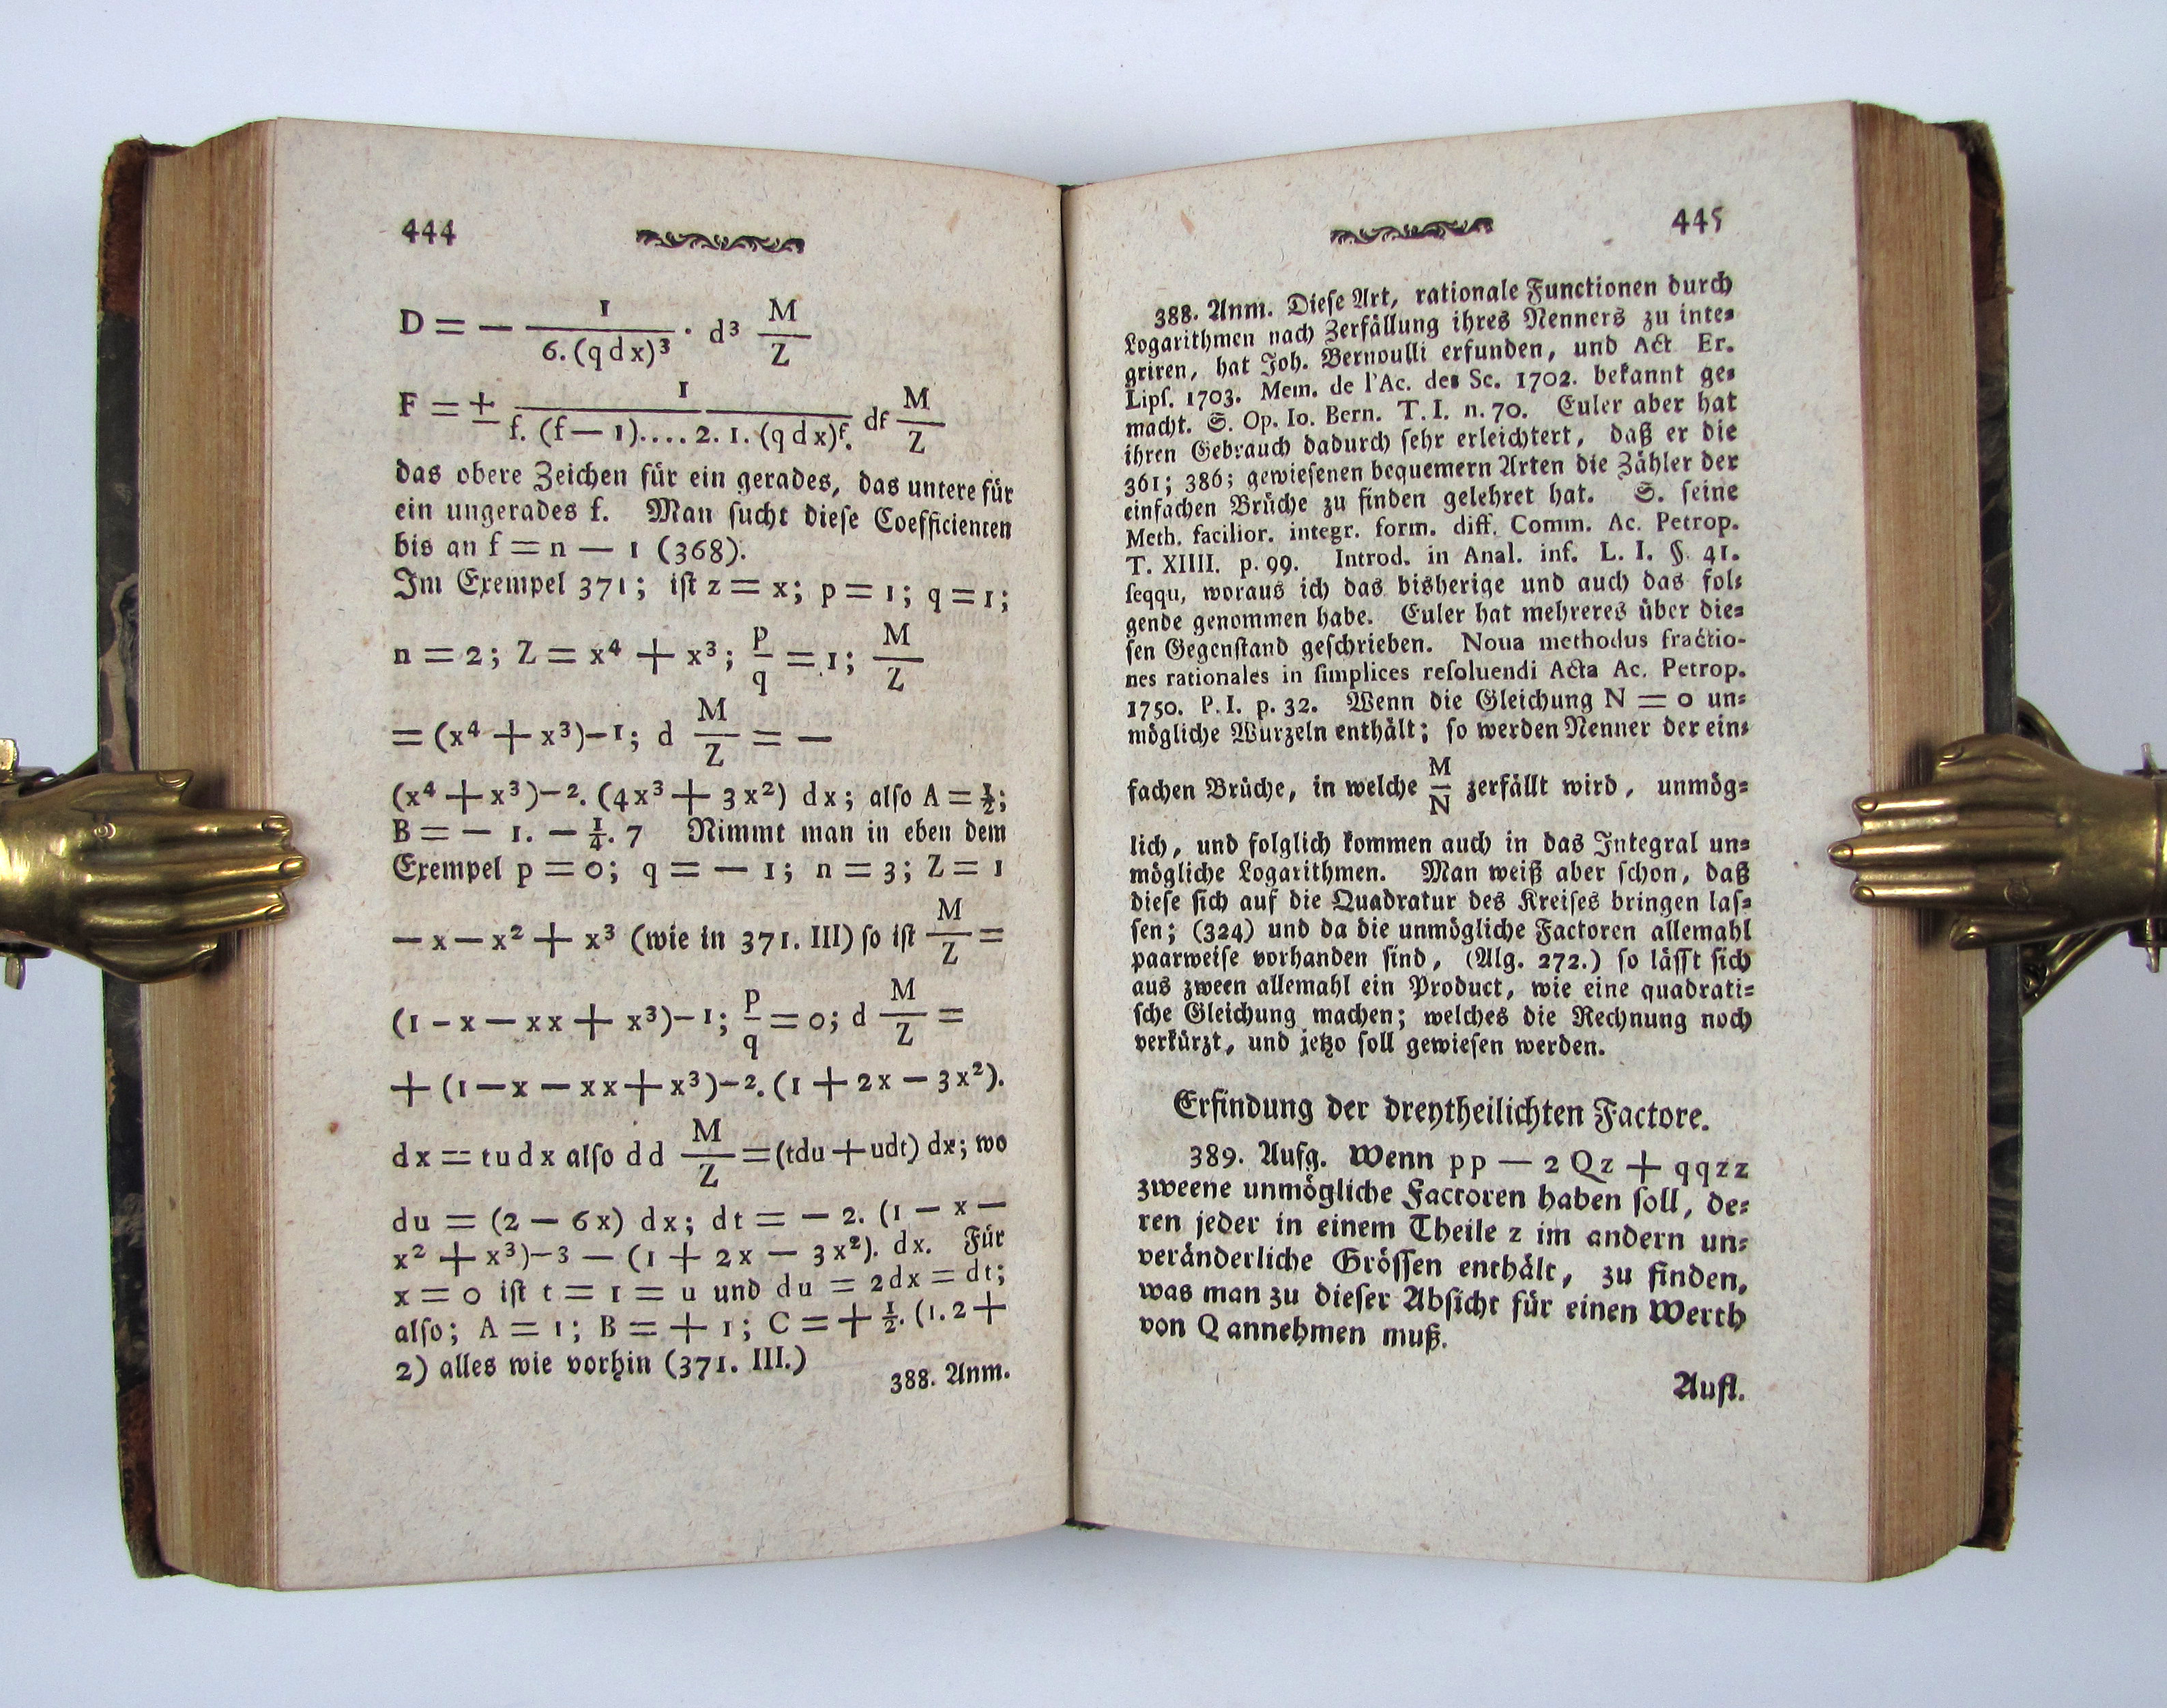 444
D = − 1/(6. (q d x)³) · d³ M/Z
F = ± 1/(f. (f − 1).... 2. 1. (q d x)ᶠ.) dᶠ M/Z
das obere Zeichen für ein gerades, das untere für
ein ungerades f. Man ſucht dieſe Coefficienten
bis an f = n − 1 (368).
Im Exempel 371; iſt z = x; p = 1; q = 1;
n = 2; Z = x⁴ + x³; p/q = 1; M/Z
= (x⁴ + x³)−¹; d M/Z = −
(x⁴ + x³)−². (4x³ + 3x²) dx; alſo A = ½;
B = − 1. − ¼. 7 Nimmt man in eben dem
Exempel p = 0; q = − 1; n = 3; Z = 1
− x − x² + x³ (wie in 371. III) ſo iſt M/Z =
(1 − x − xx + x³)−¹; p/q = 0; d M/Z =
+ (1 − x − xx + x³)−². (1 + 2x − 3x²).
dx = tudx alſo dd M/Z = (tdu + udt) dx; wo
du = (2 − 6x) dx; dt = − 2. (1 − x −
x² + x³)−3 − (1 + 2x − 3x²). dx. Für
x = 0 iſt t = 1 = u und du = 2dx = dt;
alſo; A = 1; B = + 1; C = + ½. (1. 2 +
2) alles wie vorhin (371. III.)
388. Anm.
445
388. Anm. Dieſe Art, rationale Functionen durch
Logarithmen nach Zerfällung ihres Nenners zu inte-
griren, hat Joh. Bernoulli erfunden, und Act Er.
Lipſ. 1703. Mem. de l'Ac. des Sc. 1702. bekannt ge-
macht. S. Op. Io. Bern. T. I. n. 70. Euler aber hat
ihren Gebrauch dadurch ſehr erleichtert, daß er die
361; 386; gewieſenen bequemern Arten die Zähler der
einfachen Brüche zu finden gelehret hat. S. ſeine
Meth. facilior. integr. form. diff. Comm. Ac. Petrop.
T. XIIII. p. 99. Introd. in Anal. inf. L. I. §. 41.
ſeqqu, woraus ich das bisherige und auch das fol-
gende genommen habe. Euler hat mehreres über die-
ſen Gegenſtand geſchrieben. Noua methodus fractio-
nes rationales in ſimplices reſoluendi Acta Ac. Petrop.
1750. P. I. p. 32. Wenn die Gleichung N = 0 un-
mögliche Wurzeln enthält; ſo werden Nenner der ein-
fachen Brüche, in welche M/N zerfällt wird, unmög-
lich, und folglich kommen auch in das Integral un-
mögliche Logarithmen. Man weiß aber ſchon, daß
dieſe ſich auf die Quadratur des Kreiſes bringen laſ-
ſen; (324) und da die unmögliche Factoren allemahl
paarweiſe vorhanden ſind, (Alg. 272.) ſo läſſt ſich
aus zween allemahl ein Product, wie eine quadrati-
ſche Gleichung machen; welches die Rechnung noch
verkürzt, und jetzo ſoll gewieſen werden.
Erfindung der dreytheilichten Factore.
389. Aufg. Wenn pp − 2 Qz + qqzz
zweene unmögliche Factoren haben ſoll, de-
ren jeder in einem Theile z im andern un-
veränderliche Gröſſen enthält, zu finden,
was man zu dieſer Abſicht für einen Werth
von Q annehmen muß.
Aufl.